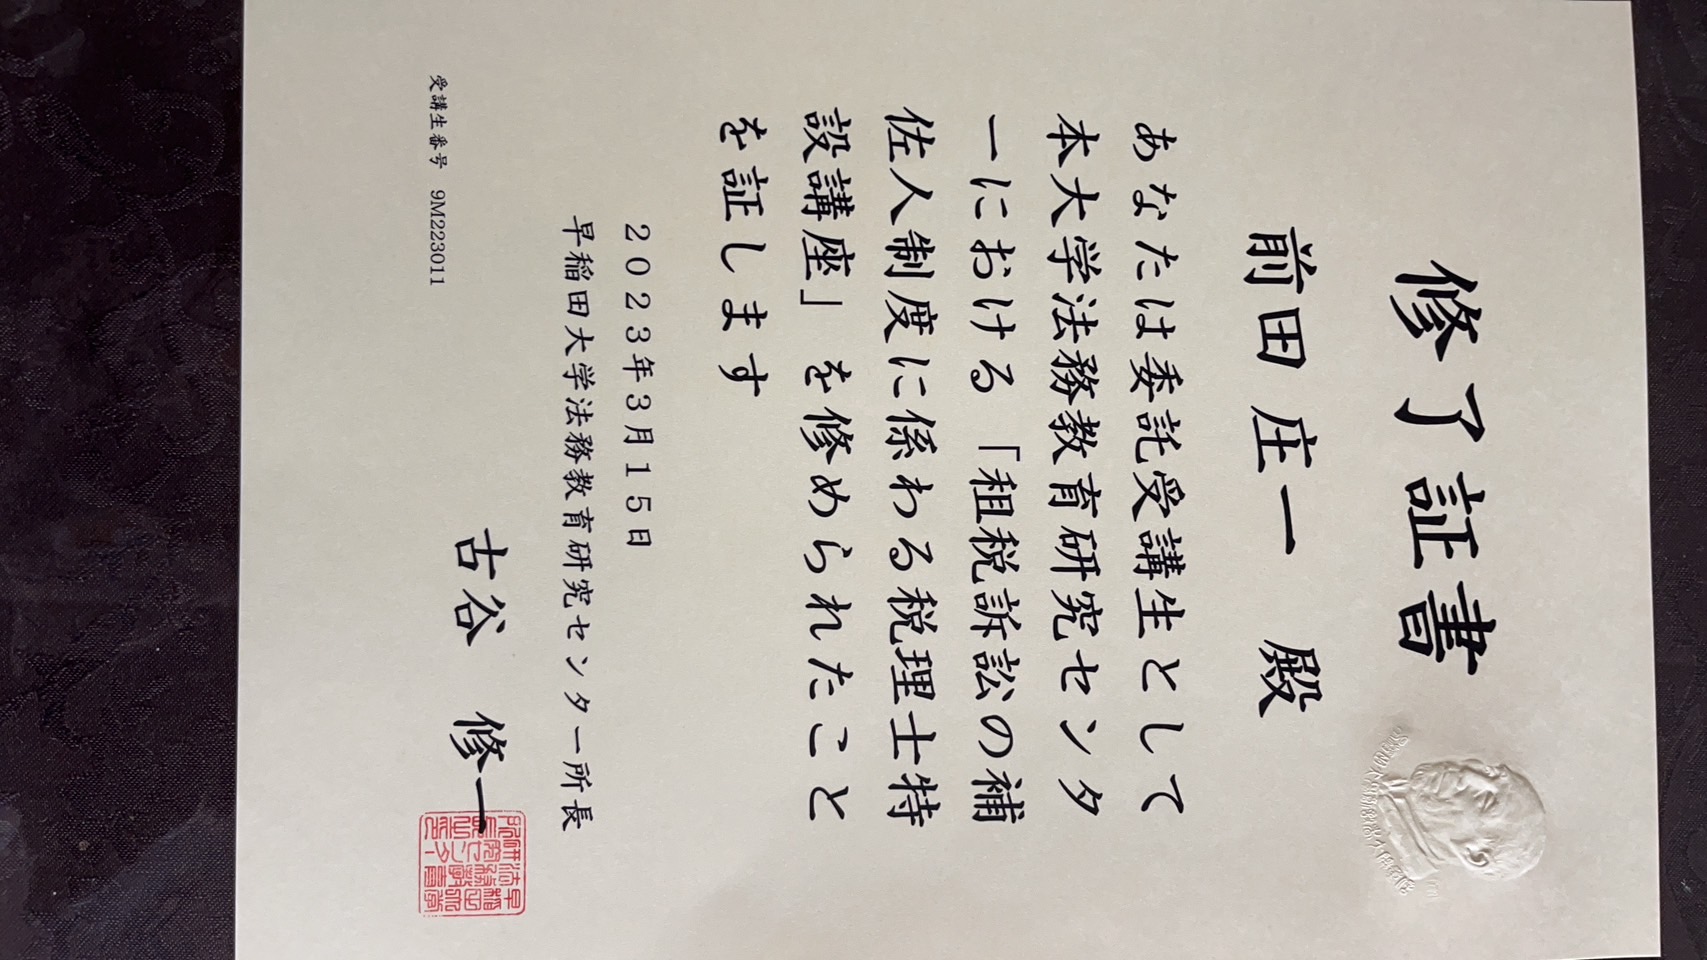 修了証書
前田庄一 殿
あなたは委託受講生として
本大学法務教育研究センタ
ーにおける「租税訴訟の補
佐人制度に係わる税理士特
設講座」を修められたこと
を証します
2023年3月15日
早稲田大学法務教育研究センター所長
古谷 修一
受講生番号 9M223011